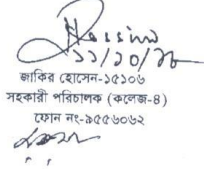 ১১/১০/১৮
জাকির হোসেন-১৫১০৬
সহকারী পরিচালক (কলেজ-৪)
ফোন নং-৯৫৫৬০৬২